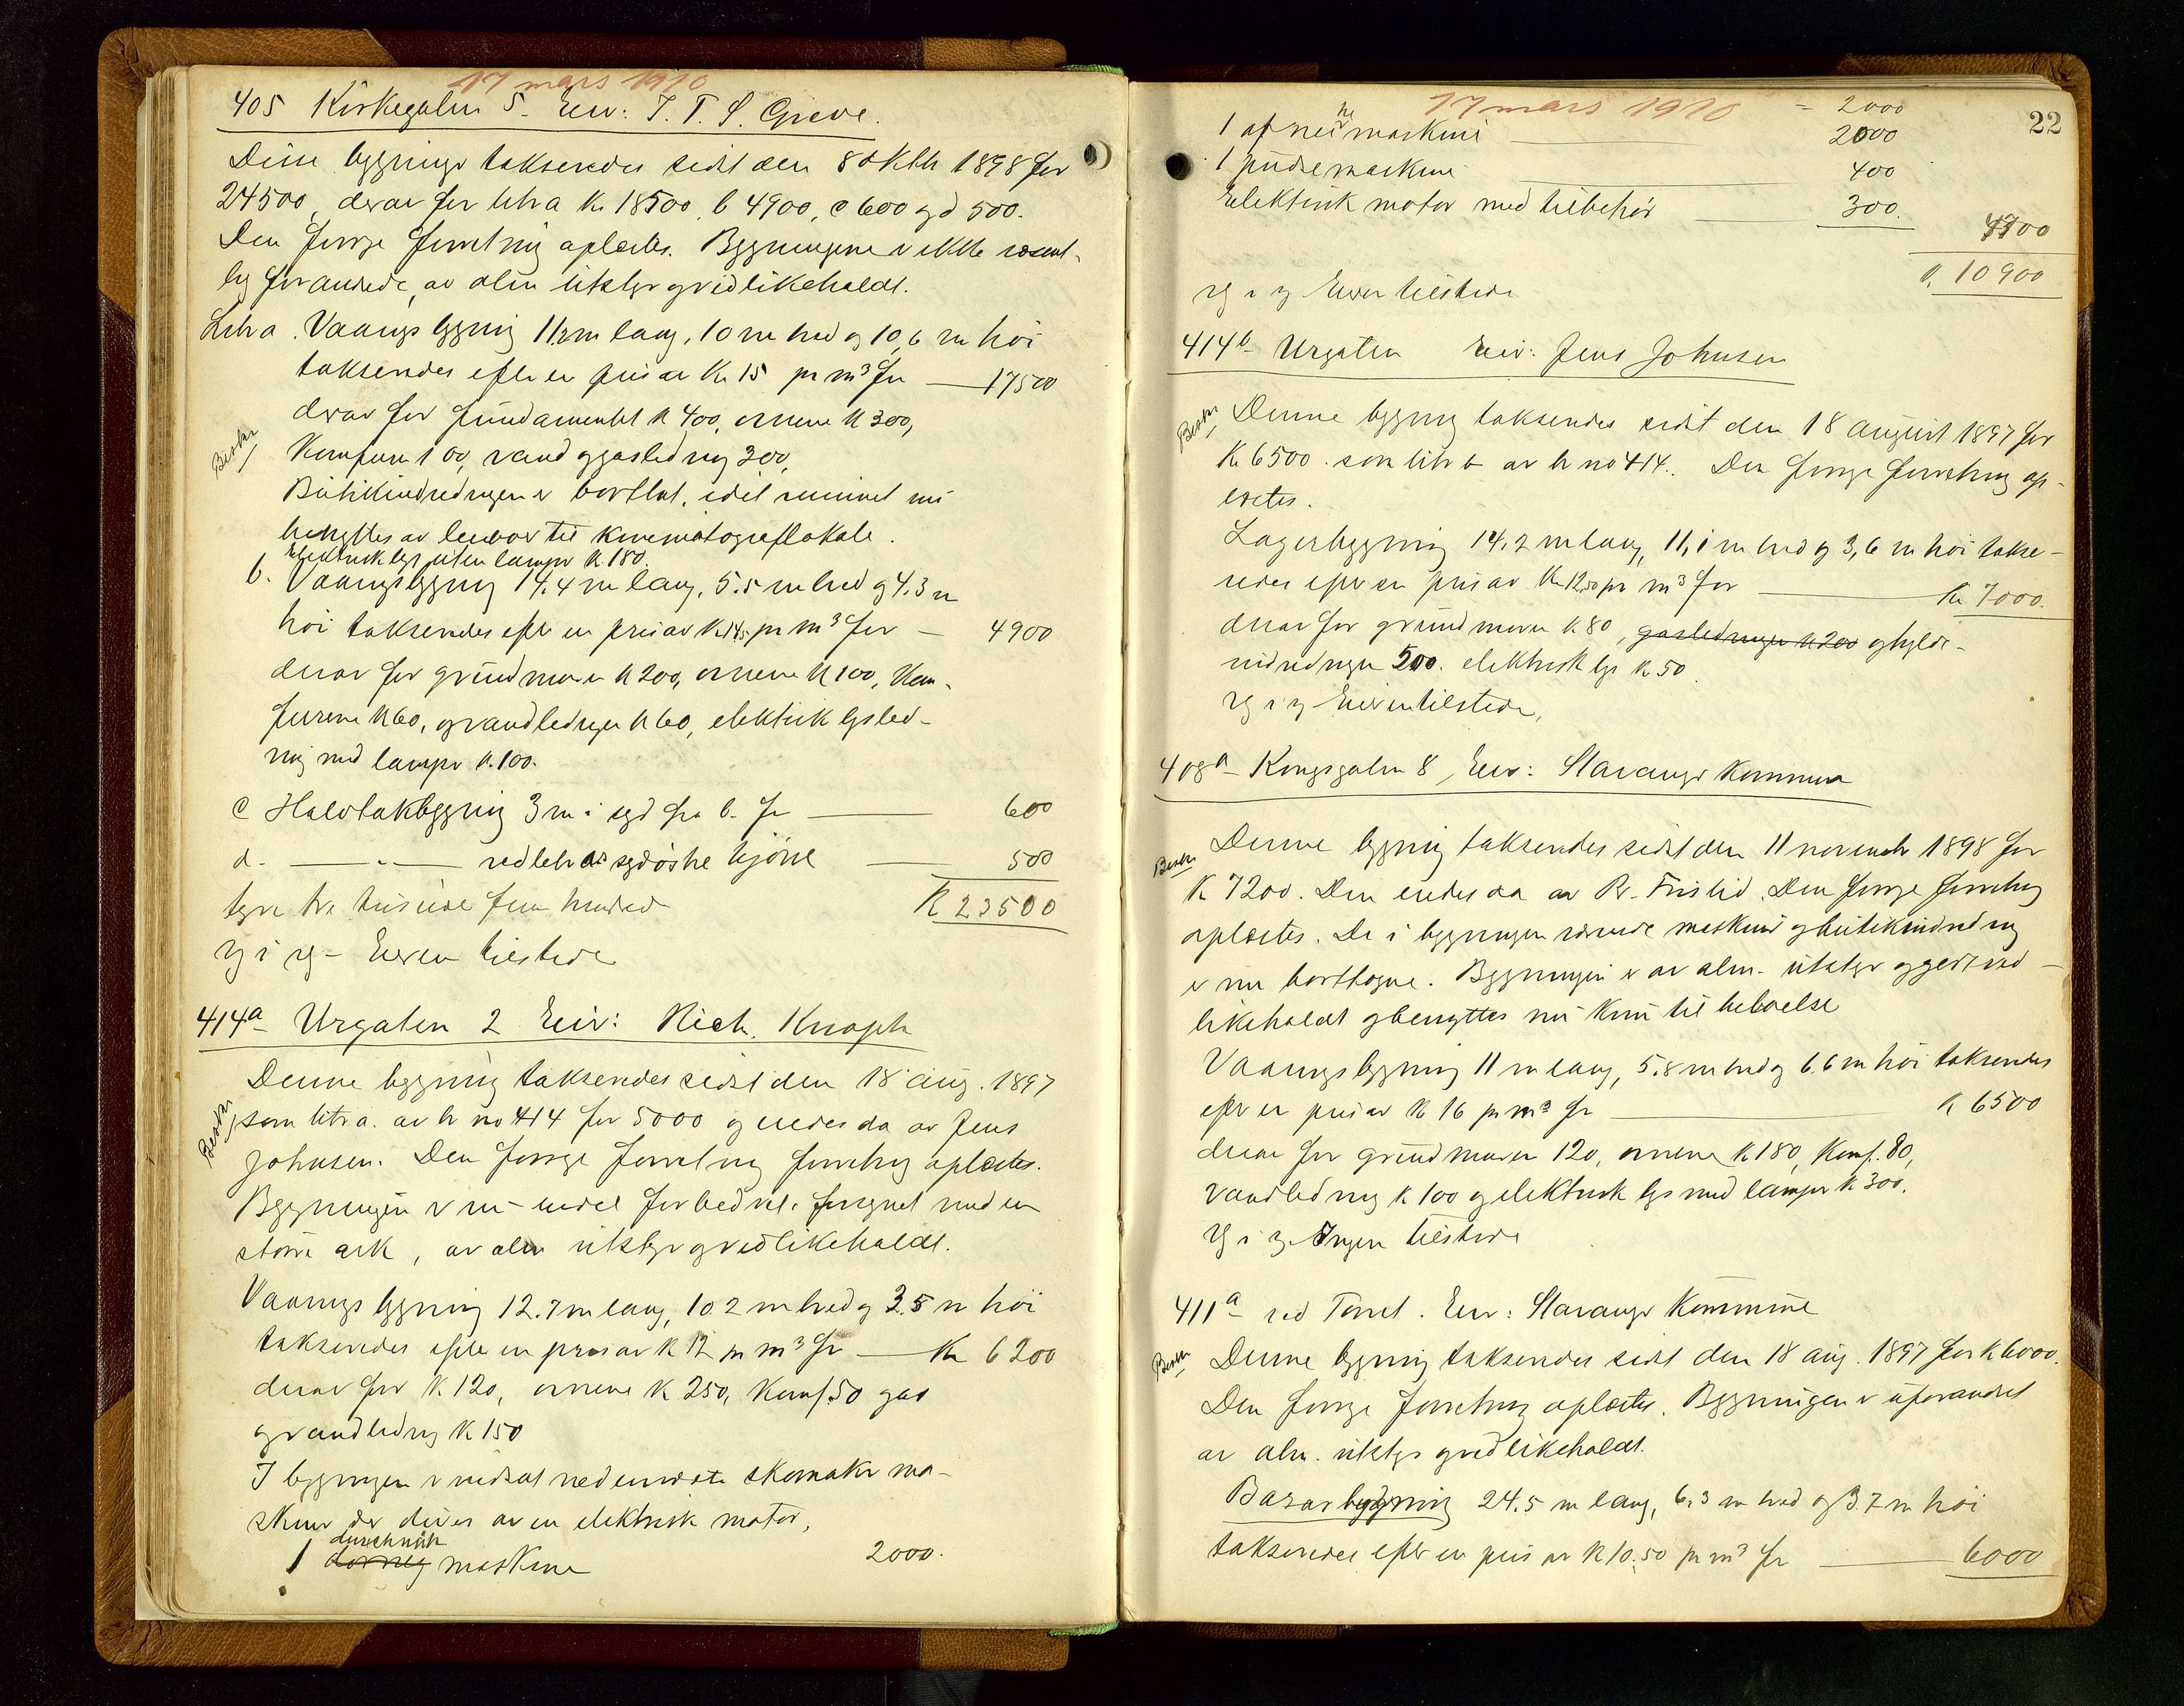 17 mars 1910
405 Kirkegaten 5. Eier: T. T. S. Greve.
Disse bygninger takseredes sidst den 8 oktbr 1898 for
24500, derav for litra a Kr 18500, b 4900, c 600 og d 500.
Den forrige forretning oplæstes. Bygningene er ikke væsent-
lig forandrede, av alm utstyr og vedlikeholdt.
Litra a. Vaaningsbygning 11.2 m lang, 10 m bred og 10,6 m høi
takseredes efter en pris av Kr 15 pr m³ for — 17500
derav for fundamentet K 400, ovnene K 300,
Beskr
Komfurer 100, vand og gasledning 300,
Butikindredningen er borttat, idet rummet nu
benyttes av leieboer til kinematograflokale.
Elektrisk lys uten lamper K 180.
b. Vaaningsbygning 14.4 m lang, 5.5 m bred og 4.3 m
høi takseredes efter en pris av K 14.50 pr m³ for — 4900
derav for grundmuren K 200, ovnene K 100, Kom-
furene K 60, og vandledningen K 60, elektrisk lysled-
ning med lamper K. 100.
c Halvtakbygning 3 m i syd fra b. for — 600
d. — " — ved litra a's sydøstre hjørne — 500
tyve tre tusinde fem hundred K 23500
rg i rg - Eieren tilstede
414a - Urgaten 2 Eier: Rich. Knoph
Denne bygning takseredes sidst den 18 aug. 1897
Beskr
som litra a. av br no 414 for 5000 og eiedes da av Jens
Johnsen. Den forrige forretning forretning oplæstes.
Bygningen er nu endel forbedret, forsynet med en
større ark, av alm utstyr og vedlikeholdt.
Vaaningsbygning 12.7 m lang, 10.2 m bred og 3.5 m høi
takseredes efter en pris av K 12 pr m³ for — Kr 6200
derav for K 120, ovnene K 250, Komf. 50 gas
og vandledning K 150
I bygningen er indsat nedennævnte skomaker ma-
skiner der drives av en elektrisk motor,
durchnäh
1 maskine 2000.
17 mars 1910
22
= 2000
1 maskine — 2000
1 pudsemaskine — 400
Elektrisk motor med tilbehør — 300.
4700
K. 10900
rg i rg Eieren tilstede
414b - Urgaten Eier: Jens Johnsen
Beskr
Denne bygning takseredes sidst den 18 august 1897 for
Kr 6500. som litr b av br no 414. Den forrige forretning op-
læstes.
Lagerbygning 14.2 m lang, 11,1 m bred og 3,6 m høi takse-
redes efter en pris av Kr 12.50 pr m³ for — Kr 7000.
derav for grundmuren K. 80, gasledningen K 200 og hylde-
indredningen 500. elektrisk lys K 50.
rg i rg Eieren tilstede,
408a - Kongsgaten 8, Eier: Stavanger Kommune
Beskr
Denne bygning takseredes sidst den 11 november 1898 for
K 7200. Den eiedes da av Br. Tristid. Den forrige forretning
oplæstes. De i bygningen værende maskiner og butikindredning
er nu borttagne. Bygningen er av alm. utstyr og godt ved-
likeholdt og benyttes nu kun til beboelse
Vaaningsbygning 11 m lang, 5.8 m bred og 6.6 m høi takseredes
efter en pris av K 16 pr m³ for — K 6500
derav for grundmuren 120, ovnene K 180, Komf. 80,
vandledning K 100 og elektrisk lys med lamper K 300.
rg i rg. Ingen tilstede
411a - ved Torvet. Eier: Stavanger Kommune
Beskr
Denne bygning takseredes sidst den 18 aug. 1897 for K 6000.
Den forrige forretning oplæstes. Bygningen er uforandret
av alm. utstyr og vedlikeholdt.
Basarbygning 24.5 m lang, 6.3 m bred og 3.7 m høi
takseredes efter en pris av K 10.50 pr m³ for — 6000